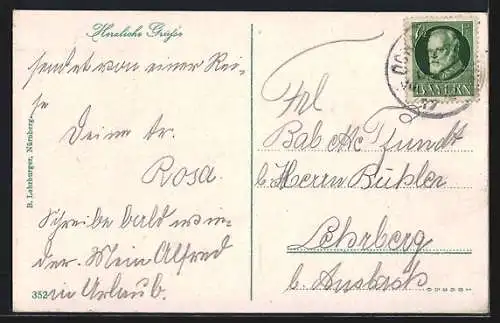 Herzliche Grüße
sendet von einer Rei-
se
Deine tr.
Rosa.
Schreibe bald wie-
der. Mein Alfred
in Urlaub.
B. Lehrburger, Nürnberg.
352
BAYERN
Frl
Bab
b. Herrn Bühler
Lehrberg
b. Ansbach